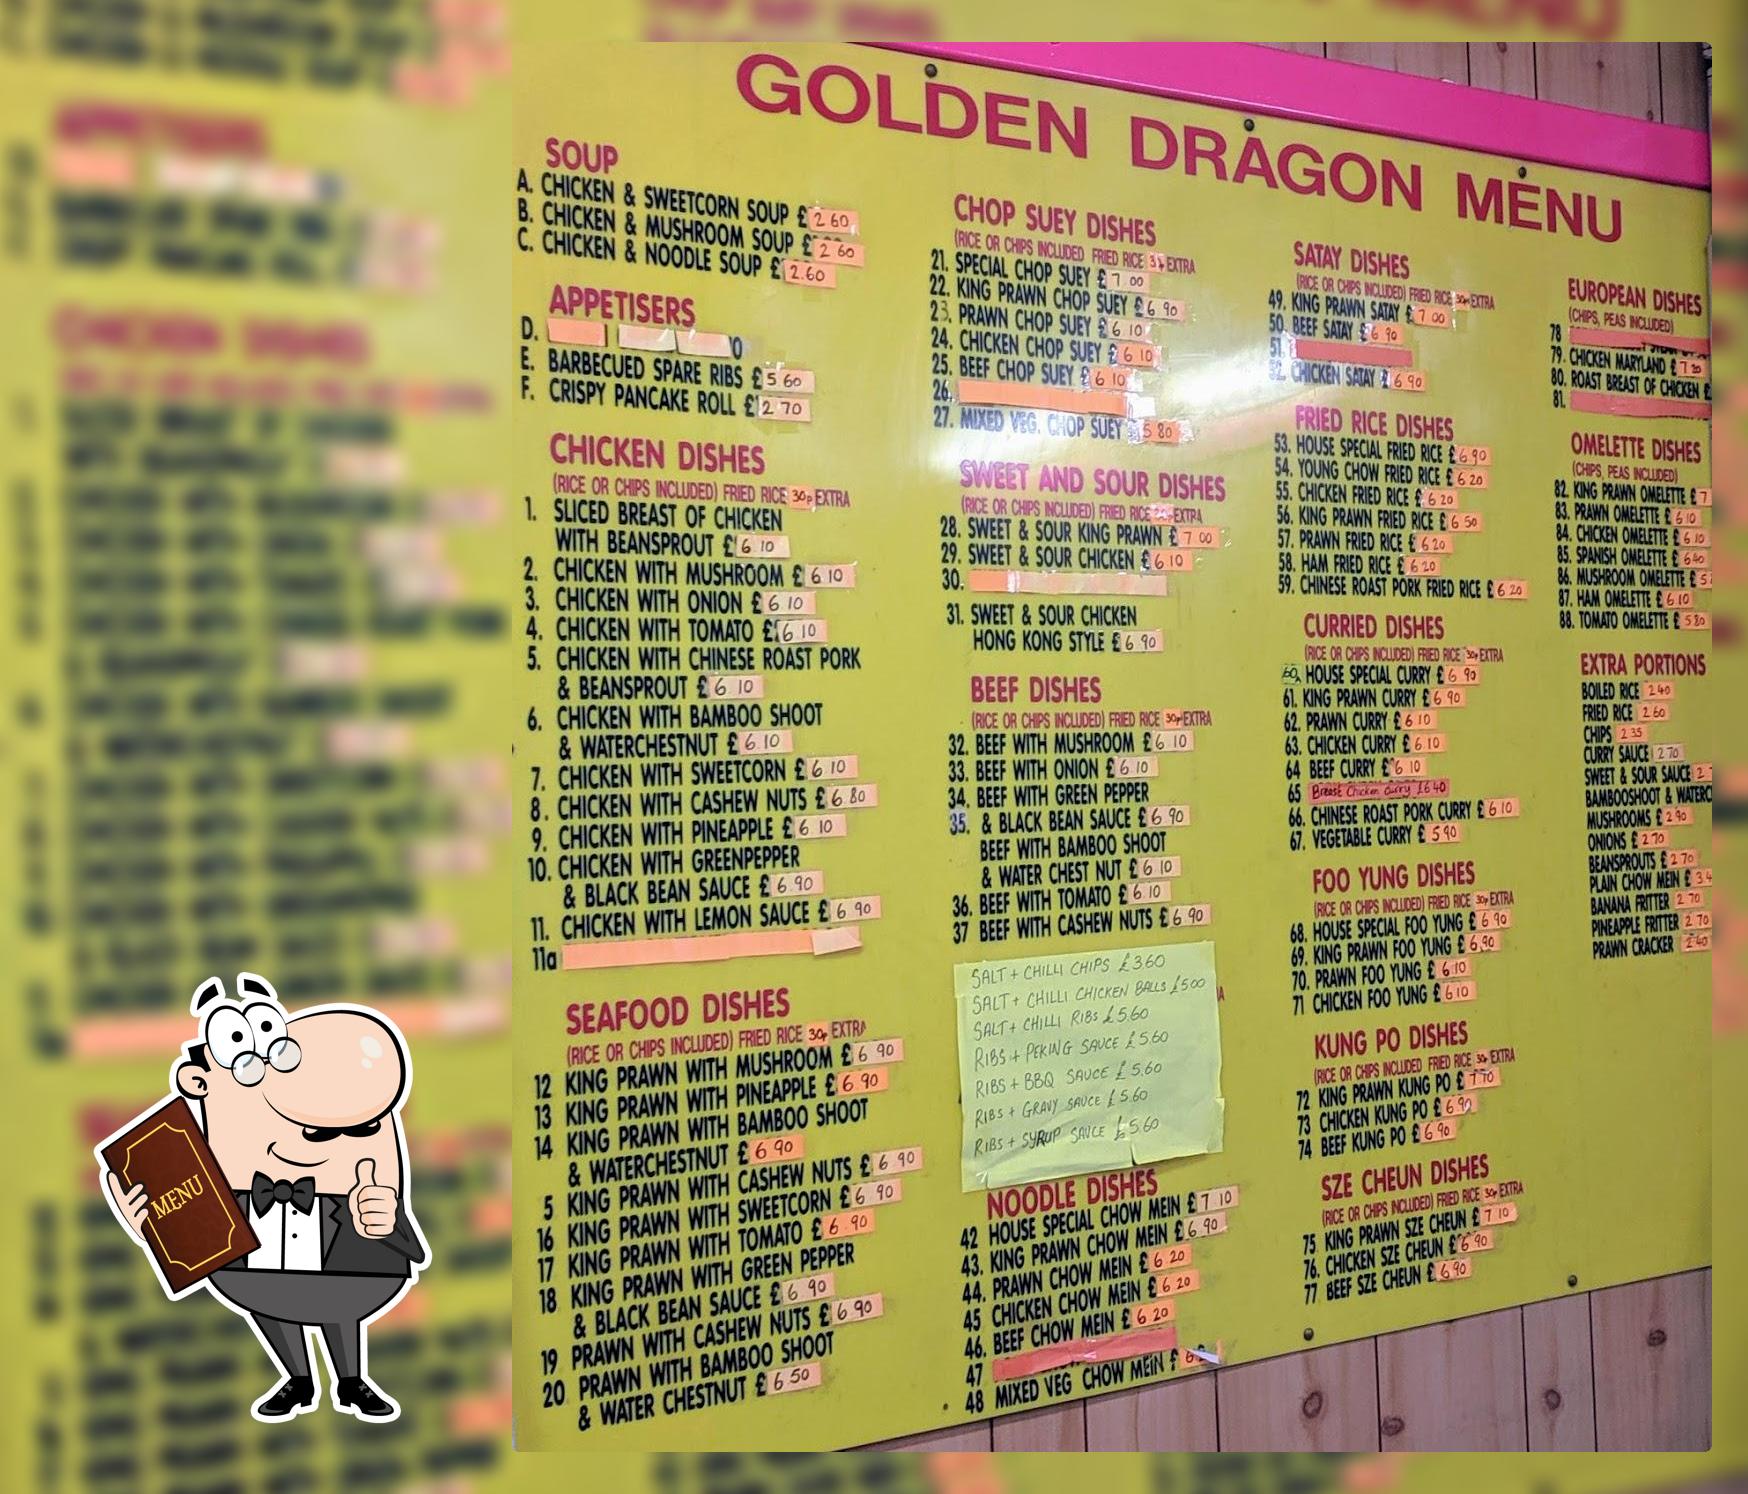 GOLDEN DRAGON MENU
SOUP
A. CHICKEN & SWEETCORN SOUP £2 60
B. CHICKEN & MUSHROOM SOUP £2 60
C. CHICKEN & NOODLE SOUP £2.60
APPETISERS
D.
E. BARBECUED SPARE RIBS £5 60
F. CRISPY PANCAKE ROLL £2 70
CHICKEN DISHES
(RICE OR CHIPS INCLUDED) FRIED RICE 30p EXTRA
1. SLICED BREAST OF CHICKEN
WITH BEANSPROUT £6 10
2. CHICKEN WITH MUSHROOM £6 10
3. CHICKEN WITH ONION £6 10
4. CHICKEN WITH TOMATO £6 10
5. CHICKEN WITH CHINESE ROAST PORK
& BEANSPROUT £6 10
6. CHICKEN WITH BAMBOO SHOOT
& WATERCHESTNUT £6.10
7. CHICKEN WITH SWEETCORN £6 10
8. CHICKEN WITH CASHEW NUTS £6 80
9. CHICKEN WITH PINEAPPLE £6 10
10. CHICKEN WITH GREENPEPPER
& BLACK BEAN SAUCE £6.90
11. CHICKEN WITH LEMON SAUCE £6 90
11a
SEAFOOD DISHES
(RICE OR CHIPS INCLUDED) FRIED RICE 30p EXTRA
12 KING PRAWN WITH MUSHROOM £6 90
13 KING PRAWN WITH PINEAPPLE £6.90
14 KING PRAWN WITH BAMBOO SHOOT
& WATERCHESTNUT £6 90
5 KING PRAWN WITH CASHEW NUTS £6 90
16 KING PRAWN WITH SWEETCORN £6 90
17 KING PRAWN WITH TOMATO £6.90
18 KING PRAWN WITH GREEN PEPPER
& BLACK BEAN SAUCE £6.90
19 PRAWN WITH CASHEW NUTS £6.90
20 PRAWN WITH BAMBOO SHOOT
& WATER CHESTNUT £6 50
CHOP SUEY DISHES
(RICE OR CHIPS INCLUDED FRIED RICE EXTRA
21. SPECIAL CHOP SUEY £7 00
22. KING PRAWN CHOP SUEY £6 90
23. PRAWN CHOP SUEY £6 10
24. CHICKEN CHOP SUEY £6 10
25. BEEF CHOP SUEY £6 10
26.
27. MIXED VEG. CHOP SUEY 5 80
SWEET AND SOUR DISHES
(RICE OR CHIPS INCLUDED) FRIED RICE EXTRA
28. SWEET & SOUR KING PRAWN £7 00
29. SWEET & SOUR CHICKEN £6 10
30.
31. SWEET & SOUR CHICKEN
HONG KONG STYLE £6 90
BEEF DISHES
(RICE OR CHIPS INCLUDED) FRIED RICE 30p EXTRA
32. BEEF WITH MUSHROOM £6 10
33. BEEF WITH ONION £6.10
34. BEEF WITH GREEN PEPPER
35. & BLACK BEAN SAUCE £6 90
BEEF WITH BAMBOO SHOOT
& WATER CHEST NUT £6 10
36. BEEF WITH TOMATO £6 10
37 BEEF WITH CASHEW NUTS £6.90
SALT + CHILLI CHIPS £3.60
SALT + CHILLI CHICKEN BALLS £5.00
SALT + CHILLI RIBS £5.60
RIBS + PEKING SAUCE £5.60
RIBS + BBQ SAUCE £5.60
RIBS + GRAVY SAUCE £5.60
RIBS + SYRUP SAUCE £5.60
NOODLE DISHES
42 HOUSE SPECIAL CHOW MEIN £7 10
43. KING PRAWN CHOW MEIN £6 90
44. PRAWN CHOW MEIN £6 20
45 CHICKEN CHOW MEIN £6 20
46. BEEF CHOW MEIN £6 20
47
48 MIXED VEG CHOW MEIN £
SATAY DISHES
(RICE OR CHIPS INCLUDED) FRIED RICE 30p EXTRA
49. KING PRAWN SATAY £7 00
50. BEEF SATAY £6 90
51.
52. CHICKEN SATAY £6 90
FRIED RICE DISHES
53. HOUSE SPECIAL FRIED RICE £6 90
54. YOUNG CHOW FRIED RICE £6 20
55. CHICKEN FRIED RICE £6 20
56. KING PRAWN FRIED RICE £6 50
57. PRAWN FRIED RICE £6 20
58. HAM FRIED RICE £6 20
59. CHINESE ROAST PORK FRIED RICE £6 20
CURRIED DISHES
(RICE OR CHIPS INCLUDED) FRIED RICE 30p EXTRA
60. HOUSE SPECIAL CURRY £6 90
61. KING PRAWN CURRY £6 90
62. PRAWN CURRY £6 10
63. CHICKEN CURRY £6 10
64 BEEF CURRY £6 10
65 Breast Chicken Curry £6 40
66. CHINESE ROAST PORK CURRY £6 10
67. VEGETABLE CURRY £5 90
FOO YUNG DISHES
(RICE OR CHIPS INCLUDED) FRIED RICE 30p EXTRA
68. HOUSE SPECIAL FOO YUNG £6 90
69. KING PRAWN FOO YUNG £6,90
70. PRAWN FOO YUNG £6 10
71 CHICKEN FOO YUNG £6 10
KUNG PO DISHES
(RICE OR CHIPS INCLUDED FRIED RICE 30 EXTRA
72 KING PRAWN KUNG PO £7.70
73 CHICKEN KUNG PO £6.90
74 BEEF KUNG PO £6 90
SZE CHEUN DISHES
(RICE OR CHIPS INCLUDED) FRIED RICE 30p EXTRA
75 KING PRAWN SZE CHEUN £7.10
76. CHICKEN SZE CHEUN £6 90
77 BEEF SZE CHEUN £6.90
EUROPEAN DISHES
(CHIPS, PEAS INCLUDED)
78
79. CHICKEN MARYLAND £
80. ROAST BREAST OF CHICKEN £
81.
OMELETTE DISHES
(CHIPS, PEAS INCLUDED)
82. KING PRAWN OMELETTE £7
83. PRAWN OMELETTE £6 10
84. CHICKEN OMELETTE £6 10
85. SPANISH OMELETTE £6 40
86. MUSHROOM OMELETTE £5
87. HAM OMELETTE £6.10
88. TOMATO OMELETTE £5 80
EXTRA PORTIONS
BOILED RICE 2 40
FRIED RICE 2 60
CHIPS 2 35
CURRY SAUCE 2 70
SWEET & SOUR SAUCE 2
BAMBOOSHOOT & WATERC
MUSHROOMS £2 90
ONIONS £2 70
BEANSPROUTS £2 70
PLAIN CHOW MEIN £3 4
BANANA FRITTER 2 70
PINEAPPLE FRITTER 2 70
PRAWN CRACKER 2 40
MENU